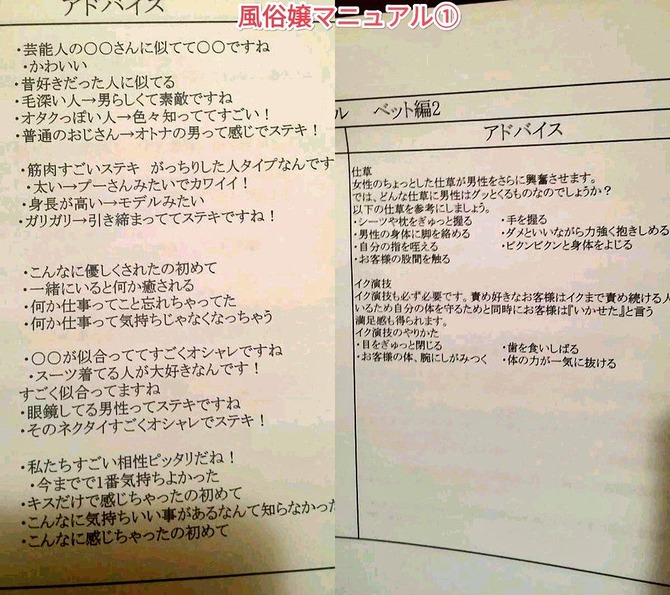 風俗嬢マニュアル①
アドバイス
・芸能人の〇〇さんに似てて〇〇ですね
・かわいい
・昔好きだった人に似てる
・毛深い人→男らしくて素敵ですね
・オタクっぽい人→色々知っててすごい！
・普通のおじさん→オトナの男って感じでステキ！
・筋肉すごいステキ　がっちりした人タイプなんです
・太い→プーさんみたいでカワイイ！
・身長が高い→モデルみたい
・ガリガリ→引き締まっててステキですね！
・こんなに優しくされたの初めて
・一緒にいると何か癒される
・何か仕事ってこと忘れちゃってた
・何か仕事って気持ちじゃなくなっちゃう
・〇〇が似合っててすごくオシャレですね
・スーツ着てる人が大好きなんです！
すごく似合ってますね
・眼鏡してる男性ってステキですね
・そのネクタイすごくオシャレでステキ！
・私たちすごい相性ピッタリだね！
・今までで1番気持ちよかった
・キスだけで感じちゃったの初めて
・こんなに気持ちいい事があるなんて知らなかっ
・こんなに感じちゃったの初めて
ル　ベット編2
アドバイス
仕草
女性のちょっとした仕草が男性をさらに興奮させます。
では、どんな仕草に男性はグッとくるものなのでしょうか？
以下の仕草を参考にしましょう。
・シーツや枕をぎゅっと握る　・手を握る
・男性の身体に脚を絡める　・ダメといいながら力強く抱きしめる
・自分の指を咥える　・ビクンビクンと身体をよじる
・お客様の股間を触る
イク演技
イク演技も必ず必要です。責め好きなお客様はイクまで責め続ける人
いるため自分の体を守るためと同時にお客様は『いかせた』と言う
満足感も得られます。
イク演技のやりかた
・目をぎゅっと閉じる　・歯を食いしばる
・お客様の体、腕にしがみつく　・体の力が一気に抜ける